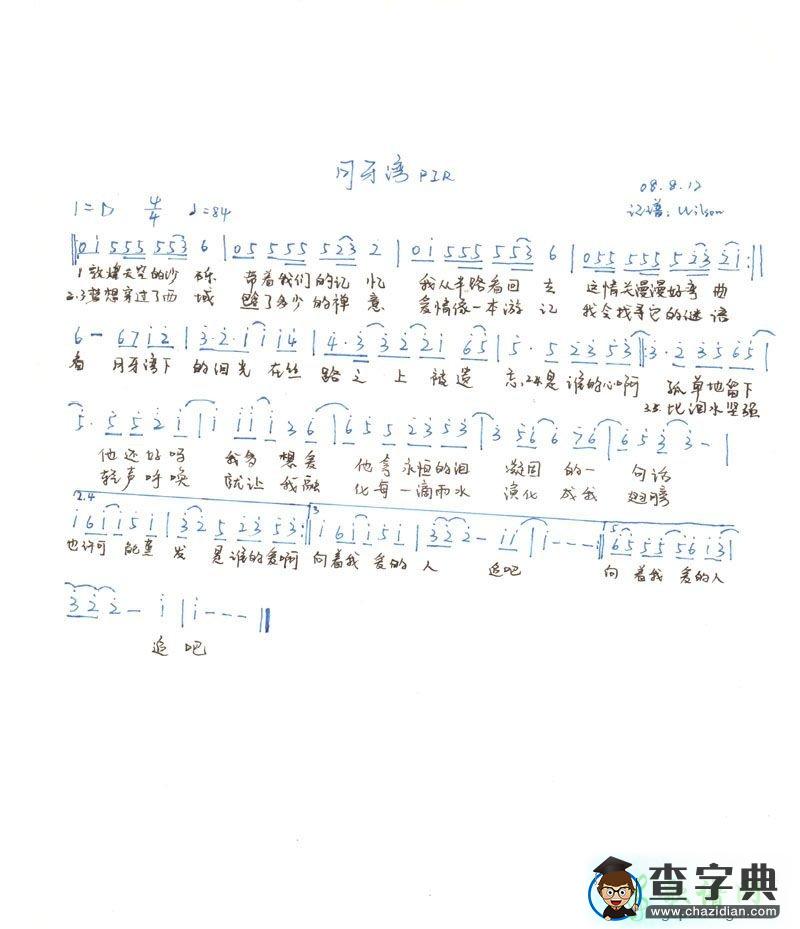 月牙湾 F.I.R
08.8.12
1=D 4/4 ♩=84
记谱:Wilson
0 i 555 553 6 | 055 555 523 2 | 0 i 555 553 6 | 055 555 523 2i :||
1.敦煌天空的沙砾 带着我们的记忆 我从半路看回去 这情关漫漫好弯曲
2.3梦想穿过了西域 包含了多少的禅意 爱情像一本游记 我会找寻它的谜语
6 — 6712 | 3·2·1 1 14 | 4·3 3221 65 | 5·5 23 53 || 3·2 35 65 |
看 月牙湾下的泪光 在丝路之上被遗忘 2.4.是谁的心啊 孤单地留下
3.5.比泪水坚强
5·5 521 | 1 111 136 | 65 5 23 53 | 3 56 6 76 | 6 53 3 — |
他还好吗 我多想爱 他拿永恒的泪 凝固的一句话
轻声呼唤 就让我融化每一滴雨水 演化成我 翅膀
2.4 3 5
161151 | 325 23 53 :|| 161151 | 322 — 11 | 1 - - - :|| 65 555 56 13 |
也许可能蒸发 是谁的爱啊 向着我爱的人 追吧 向着我爱的人
322 — 1 | 1 - - - ||
追吧
查字典
www.chazidian.com